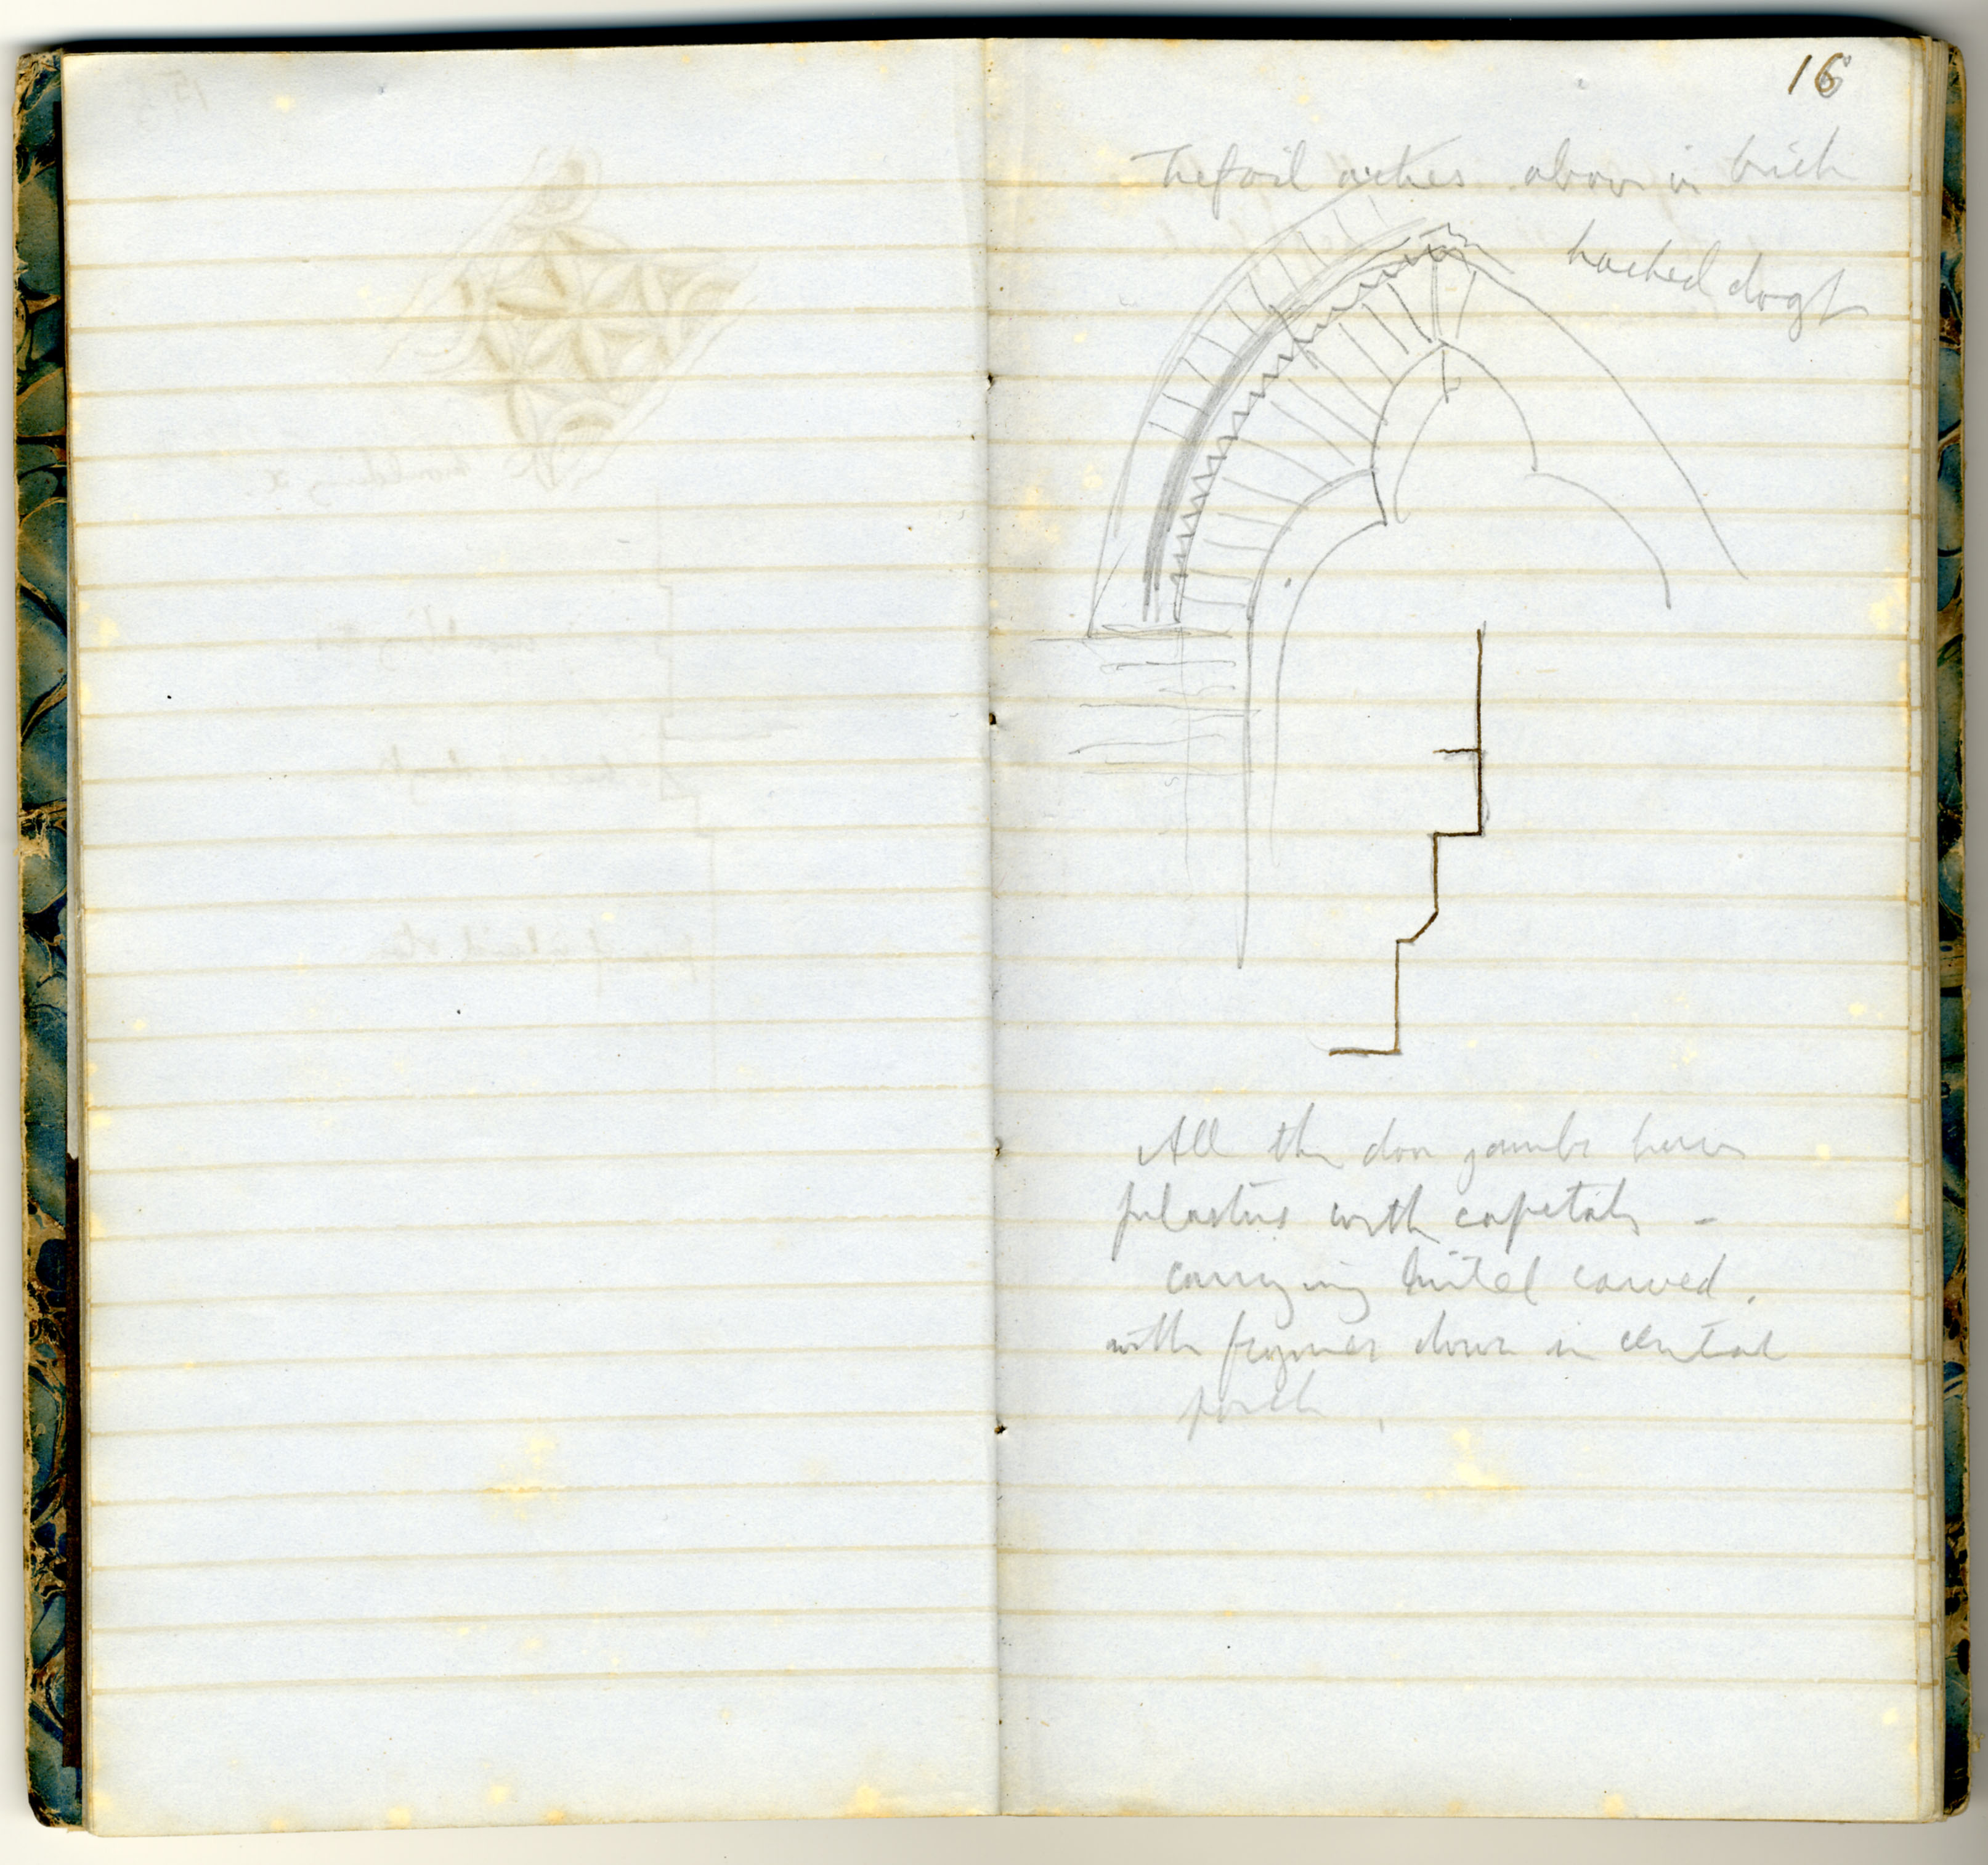 16
Trefoil arches above in brick
hacked dogt
All the door jambs have
pilasters with capitals -
carrying lintel carved.
with figures down in central
porch.